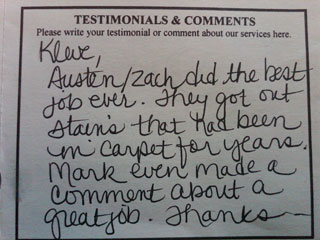 TESTIMONIALS & COMMENTS
Please write your testimonial or comment about our services here.
Kleve,
Austen/Zach did the best
job ever. They got out
stains that had been
in carpet for years.
Mark even made a
comment about a
great job. Thanks